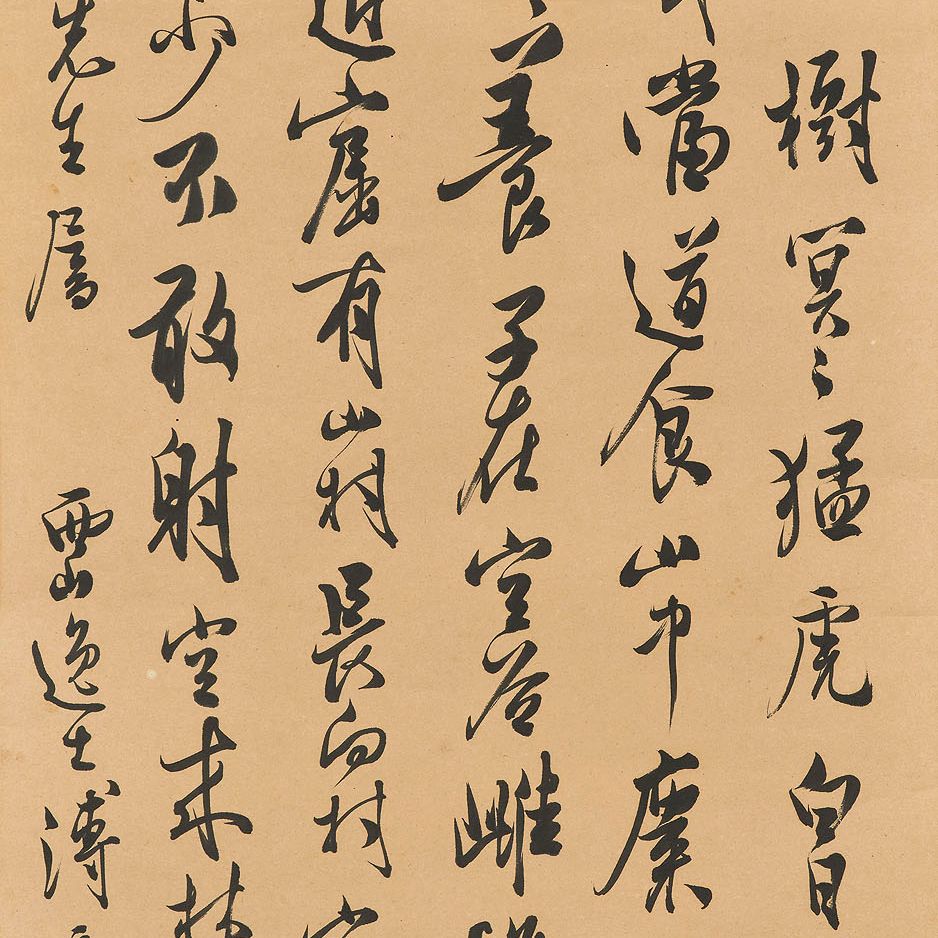 樹冥〻猛虎白日
當道食山中麋
〻養子在空谷雌
近崫有山村長向村
少不敢射空來林
先生屬 西山逸士溥